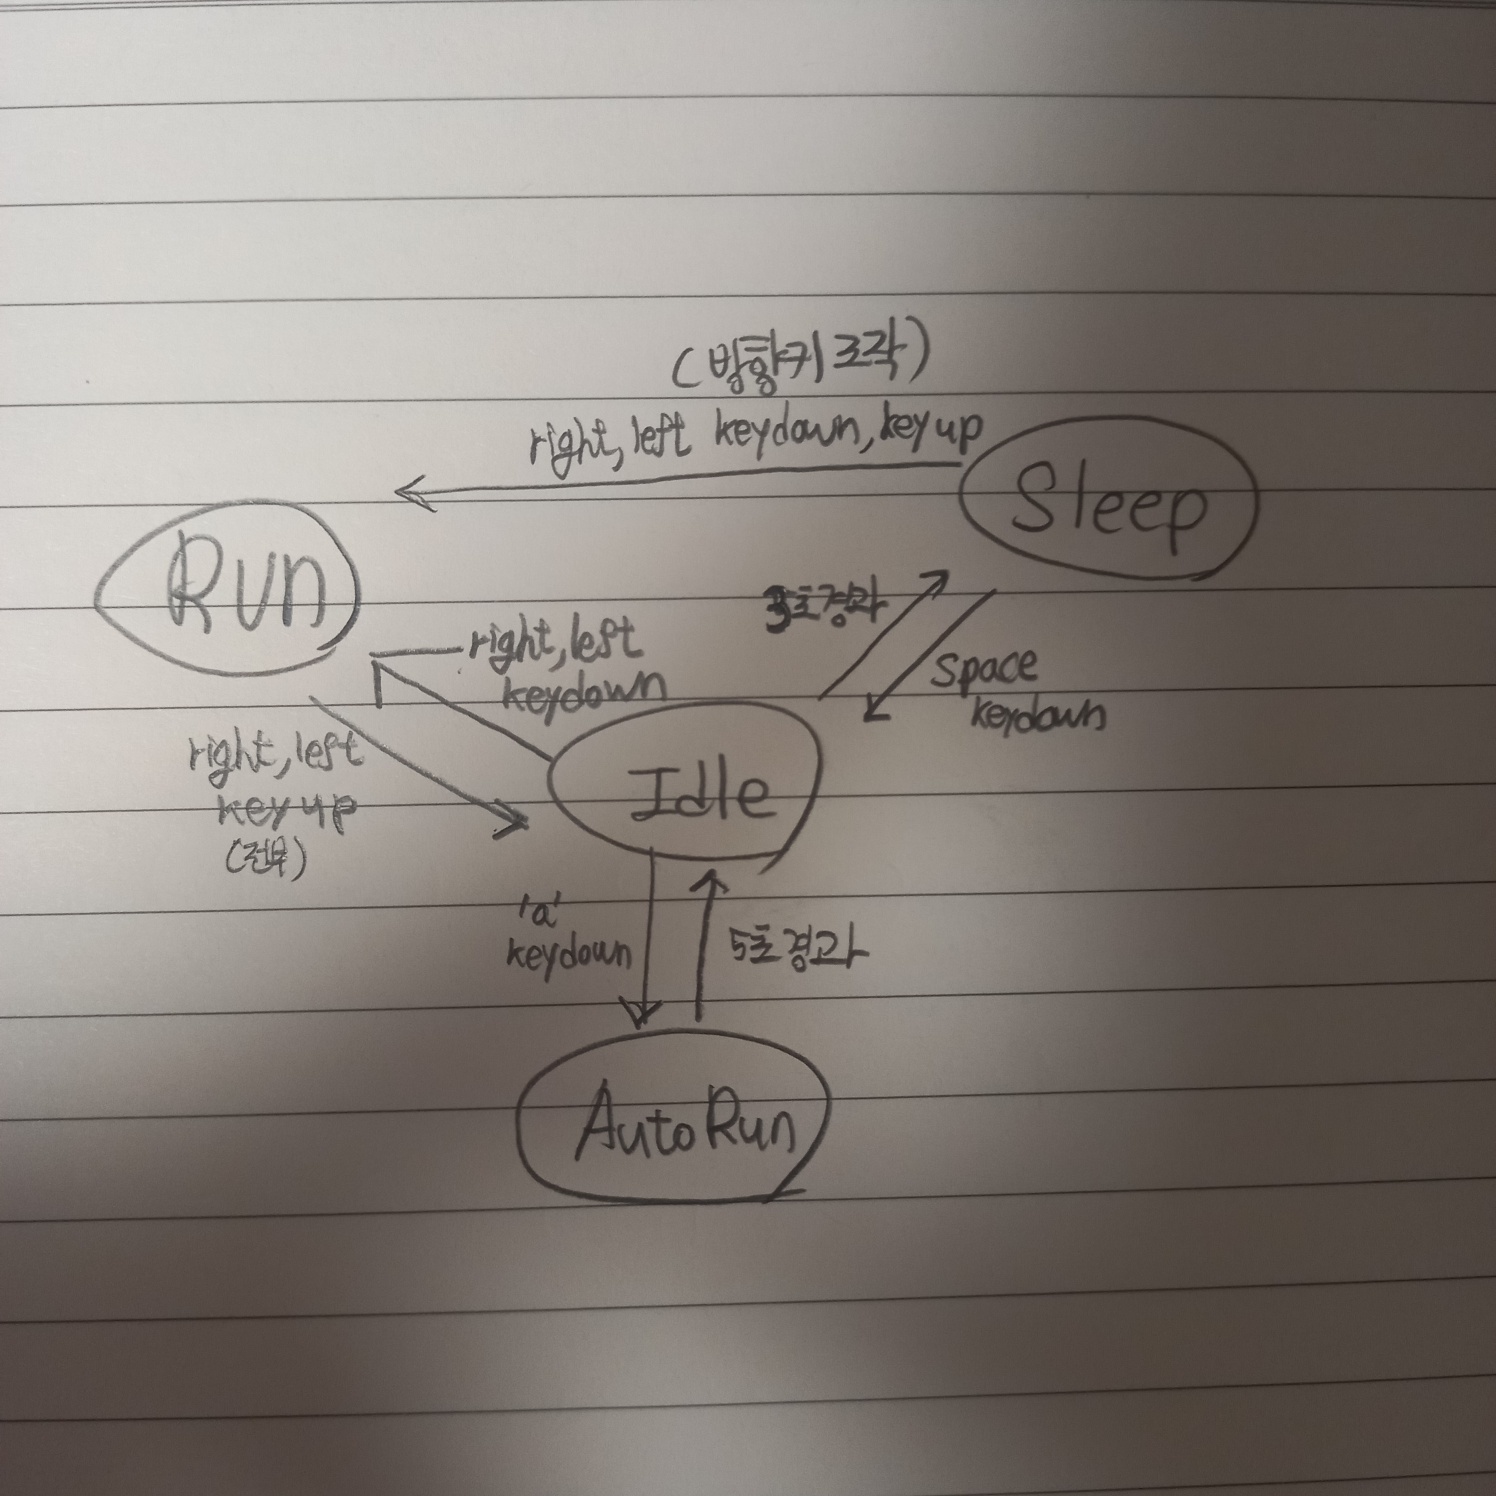 (방향키 조작)
right, left keydown, keyup
Sleep
Run
3초 경과
right, left
keydown
space
keydown
right, left
key up
(전부)
Idle
'a'
keydown
5초 경과
Auto Run